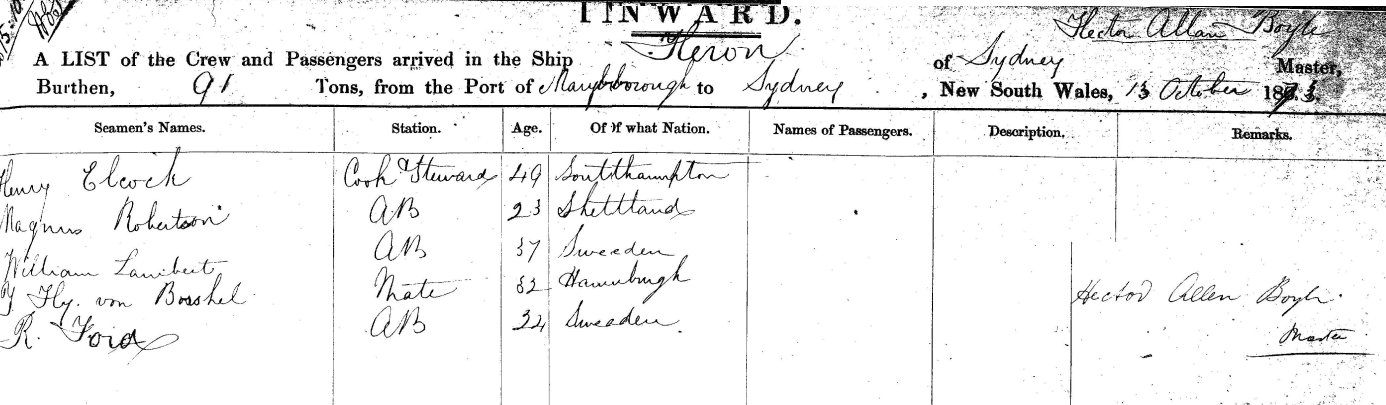 INWARD.
Hector Allan Boyle
A LIST of the Crew and Passengers arrived in the Ship Heron of Sydney Master,
Burthen, 91 Tons, from the Port of Maryborough to Sydney, New South Wales, 13 October 1873.
Seamen's Names. Station. Age. Of what Nation. Names of Passengers. Description. Remarks.
Henry Elcock Cook & Steward 49 Southhampton
Magnus Robertson AB 23 Shettland
William Lambert AB 37 Sweeden
von Mate 32 Hamburgh Hector Allen Boyle
R. Ford AB 32 Sweeden Master